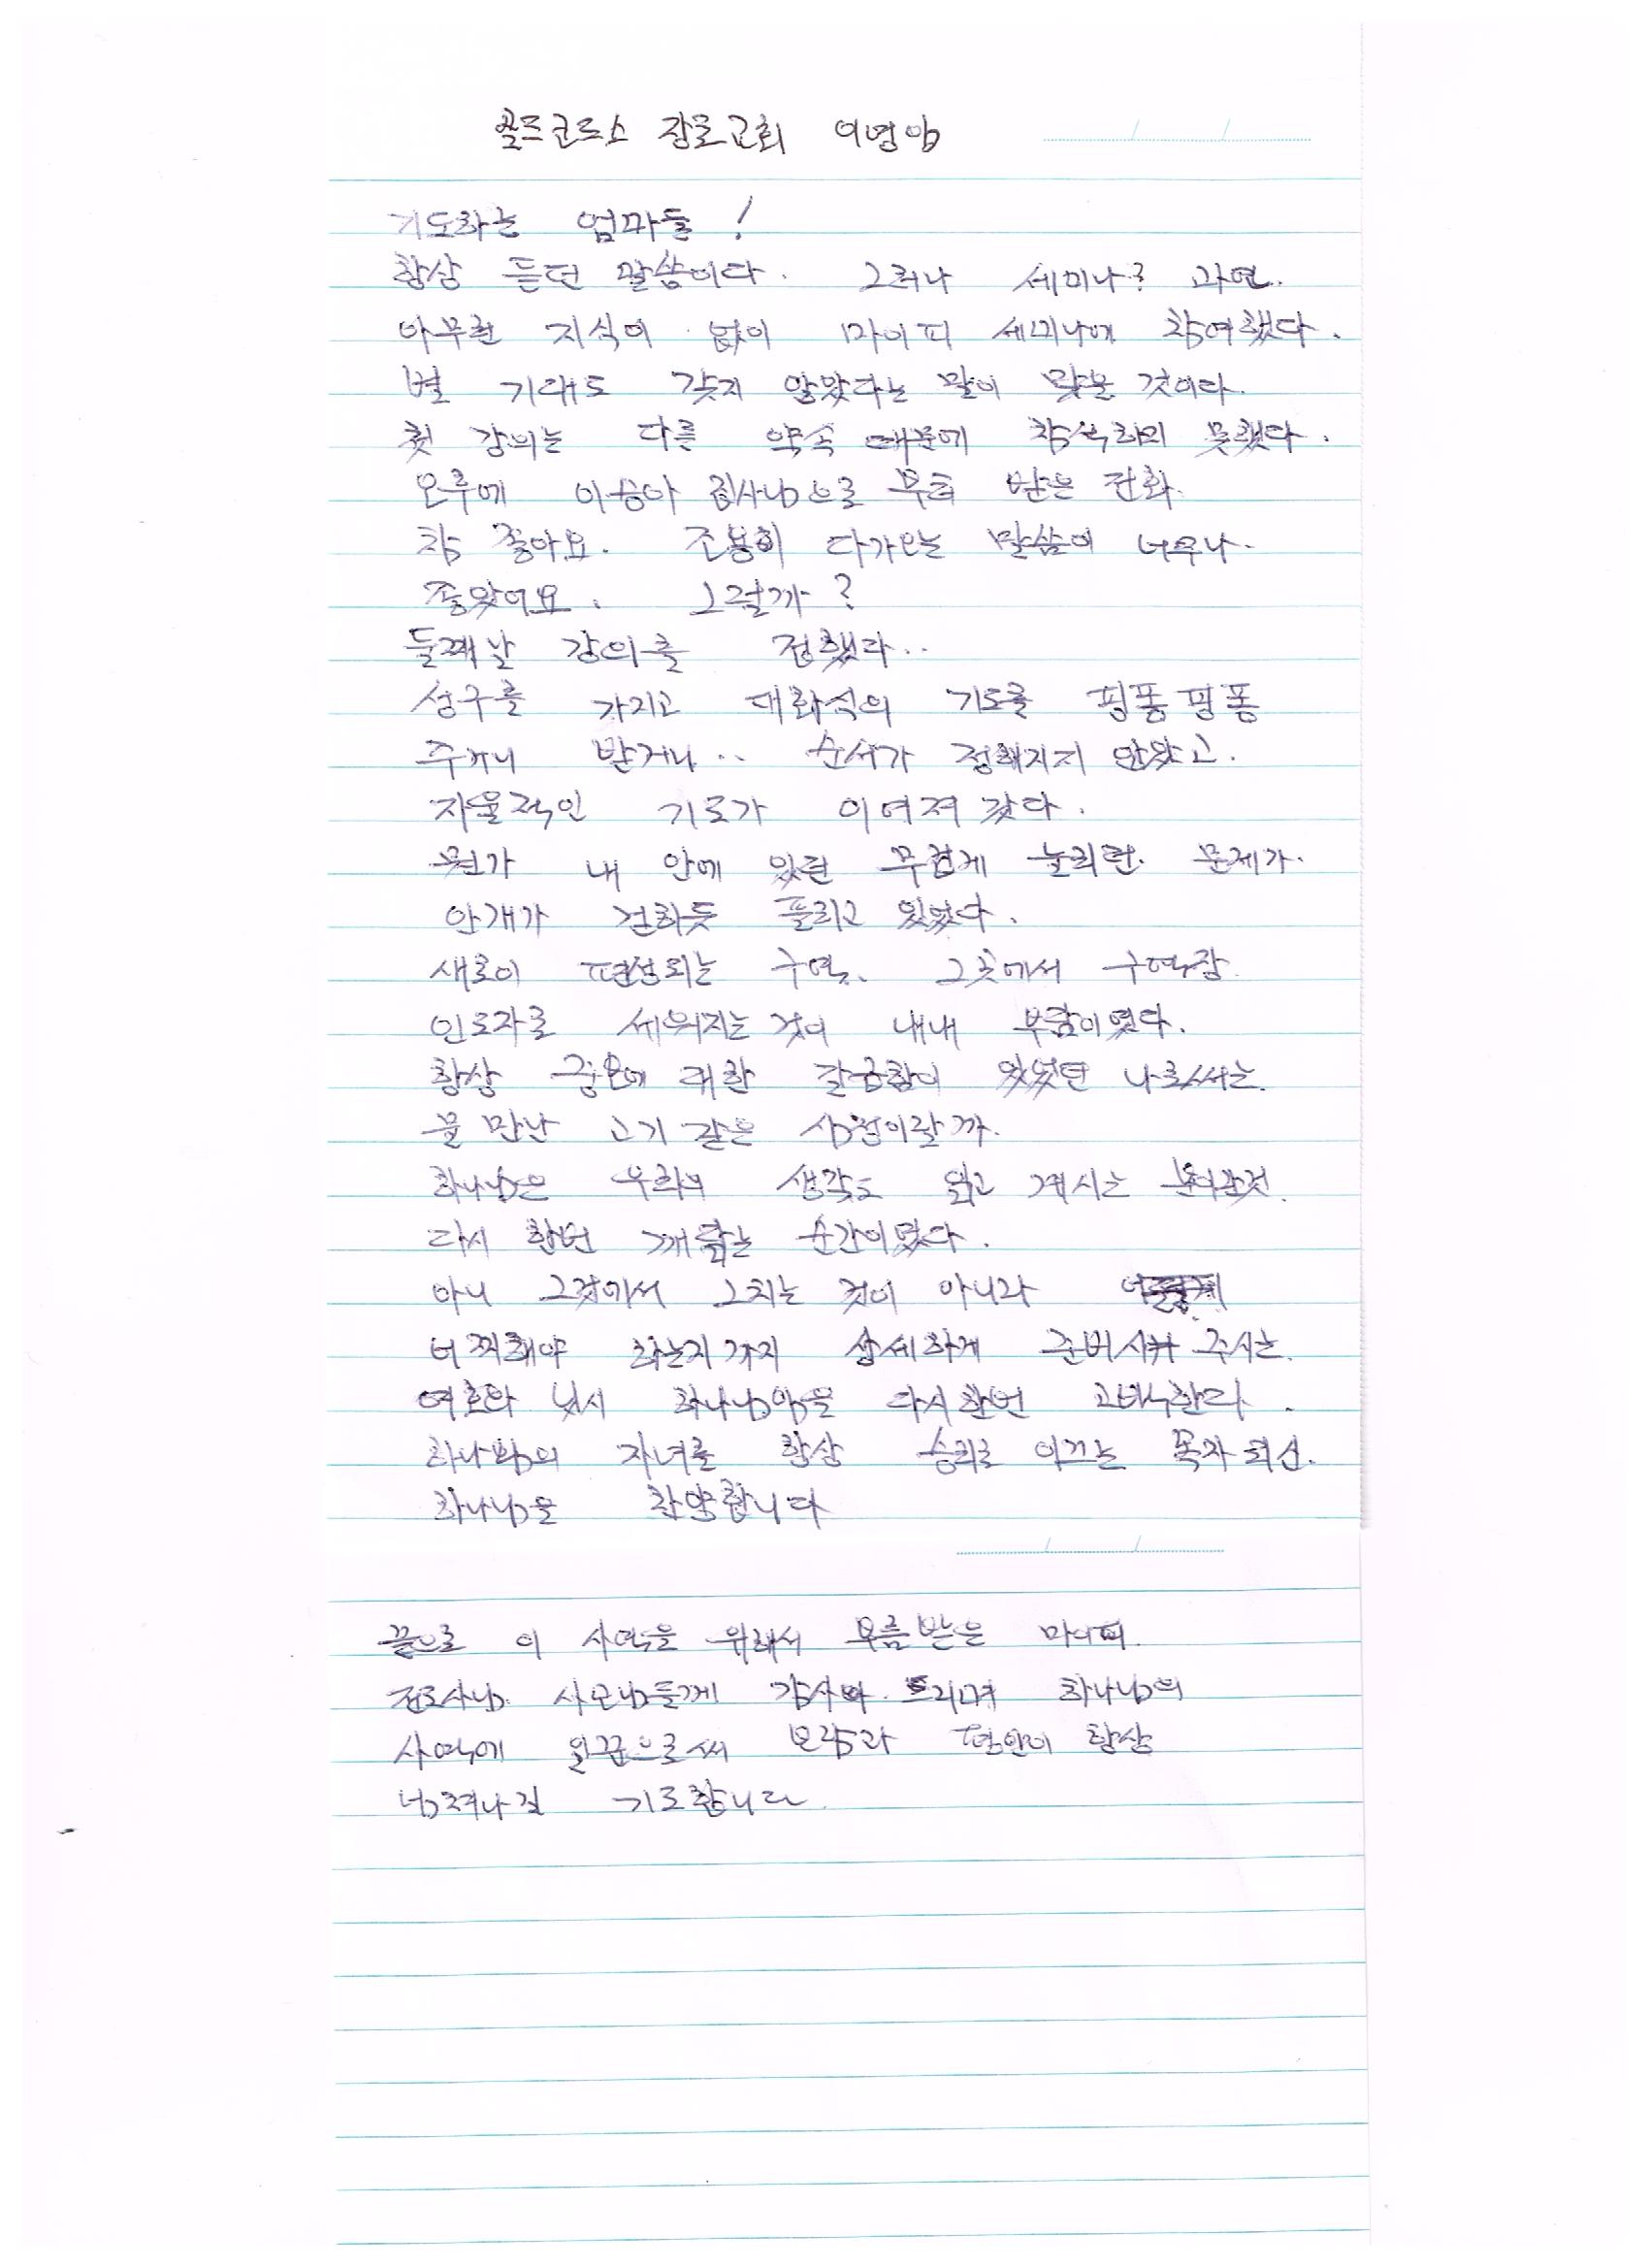 골드코스트 장로교회 이영임
기도하는 엄마들 !
항상 듣던 말씀이다. 그러나 세미나? 과연.
아무런 지식이 없이 마이피 세미나에 참여했다.
별 기대도 갖지 않았다는 말이 맞는 것이다.
첫 강의는 다른 약속 때문에 참석하지 못했다.
오후에 이승아 집사님으로 부터 받은 전화.
참 좋아요. 조용히 다가오는 말씀이 너무나.
좋았어요. 그럴까?
둘째날 강의를 접했다..
성구를 가지고 대화식의 기도를 핑퐁핑퐁
주거니 받거니.. 순서가 정해지지 않았고.
자율적인 기도가 이여져 갔다.
뭔가 내 안에 있던 무겁게 눌리던. 문제가.
안개가 걷히듯 풀리고 있었다.
새로이 편성되는 구역. 그곳에서 구역장
인도자로 세워지는 것이 내내 부담이였다.
항상 중보에 대한 갈급함이 있었던 나로써는.
물 만난 고기 같은 심정이랄까.
하나님은 우리의 생각도 읽고 계시는 분이란것.
다시 한번 깨닫는 순간이였다.
아니 그것에서 그치는 것이 아니라
어찌해야 하는지까지 상세하게 준비시켜 주시는.
여호와 닛시 하나님임을 다시한번 고백한다.
하나님의 자녀를 항상 승리로 이끄는 목자 되신.
하나님을 찬양합니다
끝으로 이 사역을 위해서 부름받은 마이피
전도사님. 사모님들께 감사의 드리며 하나님의
사역에 일꾼으로써 보람과 평안이 항상
넘쳐나길 기도합니다.